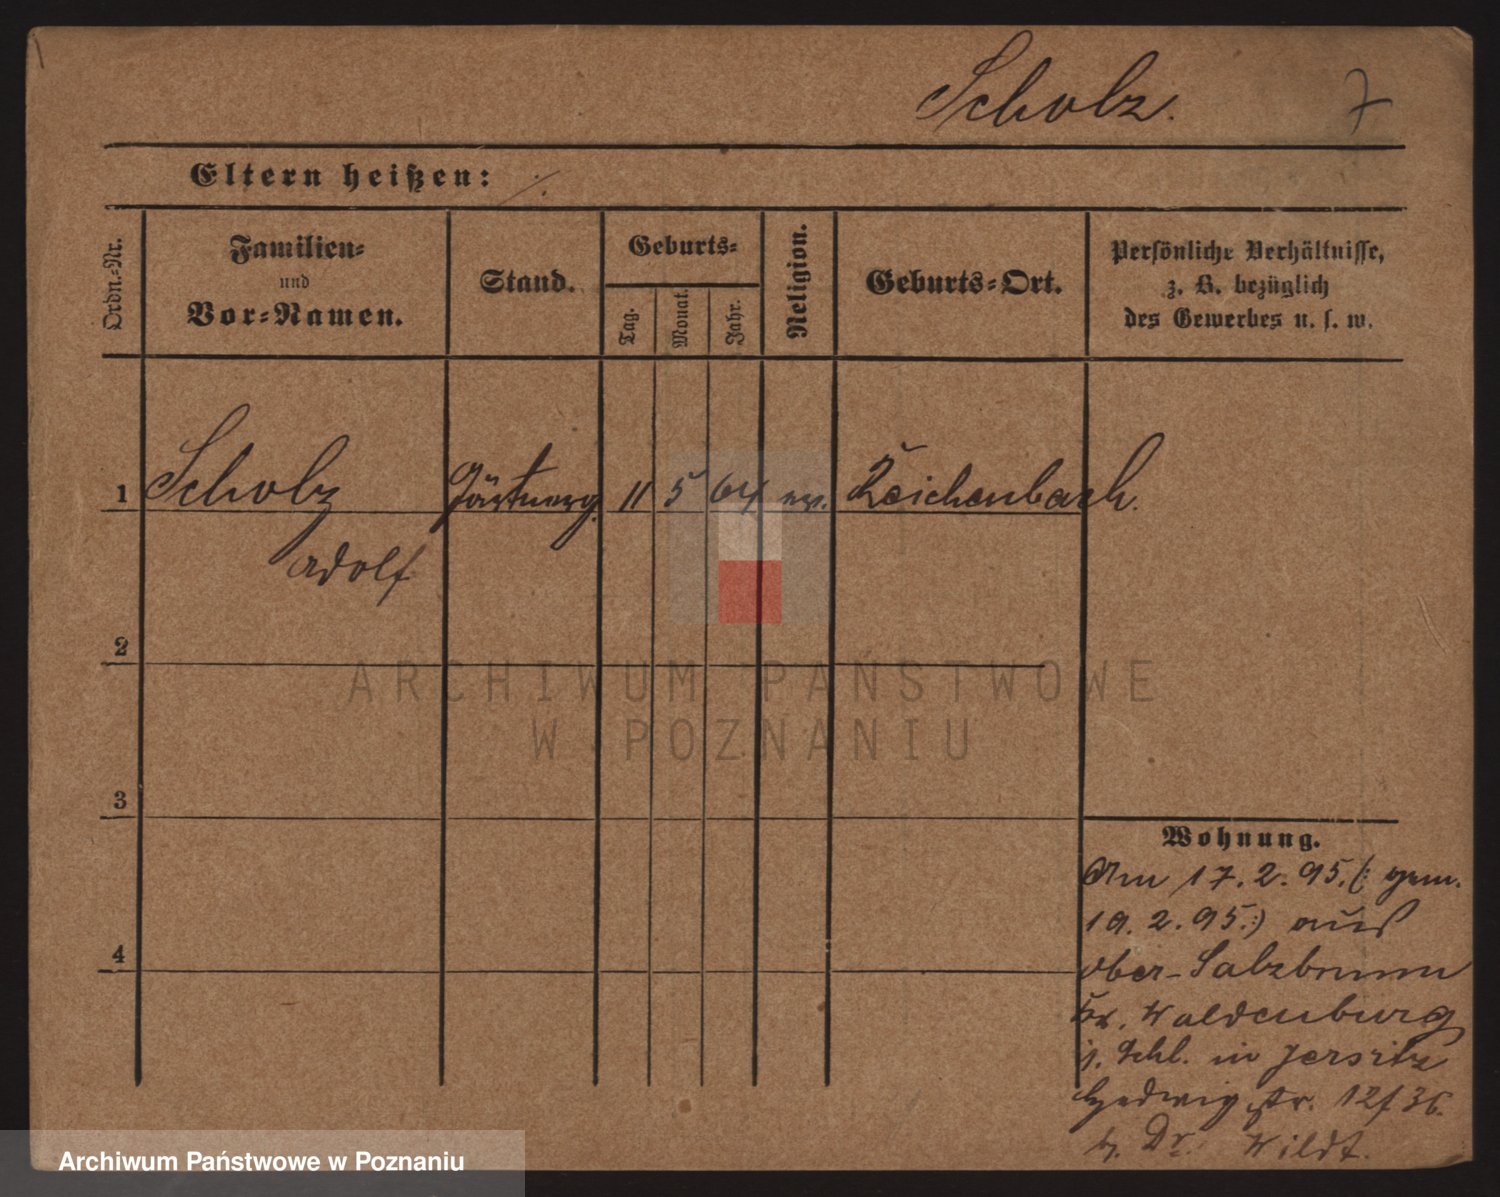 Scholz. 7
Eltern heißen: ./.
Ordn.-Nr.
Familien-
und
Vor-Namen.
Stand.
Geburts-
Tag.
Monat.
Jahr.
Religion.
Geburts-Ort.
Persönliche Verhältnisse,
z. B. bezüglich
des Gewerbes u. s. w.
1 Scholz 11 5 64 ev. Reichenbach.
Adolf
2
3
4
Wohnung.
Am 17.2.95. (: gem.
19.2.95 :) aus
Ober-Salzbrunn
Kr. Waldenburg
i. Schl. in Jersitz
Hedwigstr. 12/36.
b. Dr. Wildt.
ARCHIWUM PAŃSTWOWE
W POZNANIU
Archiwum Państwowe w Poznaniu